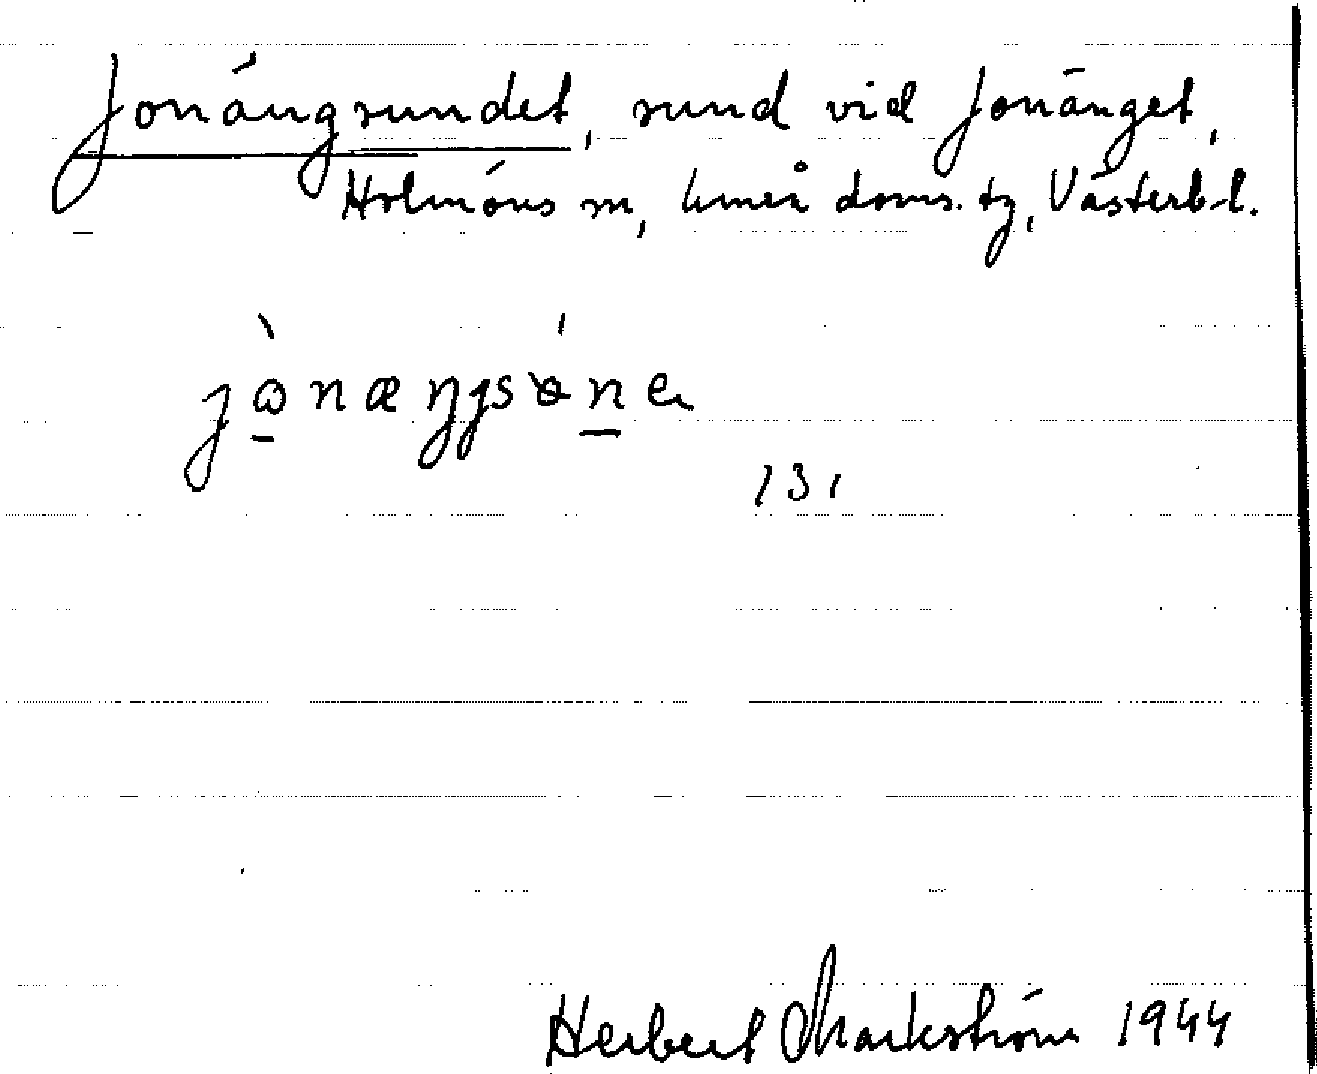 Jonängsundet, sund vid Jonänget,
Holmöns sn, Umeå doms. tg, Västerb-l.
131
Herbert Markström 1944